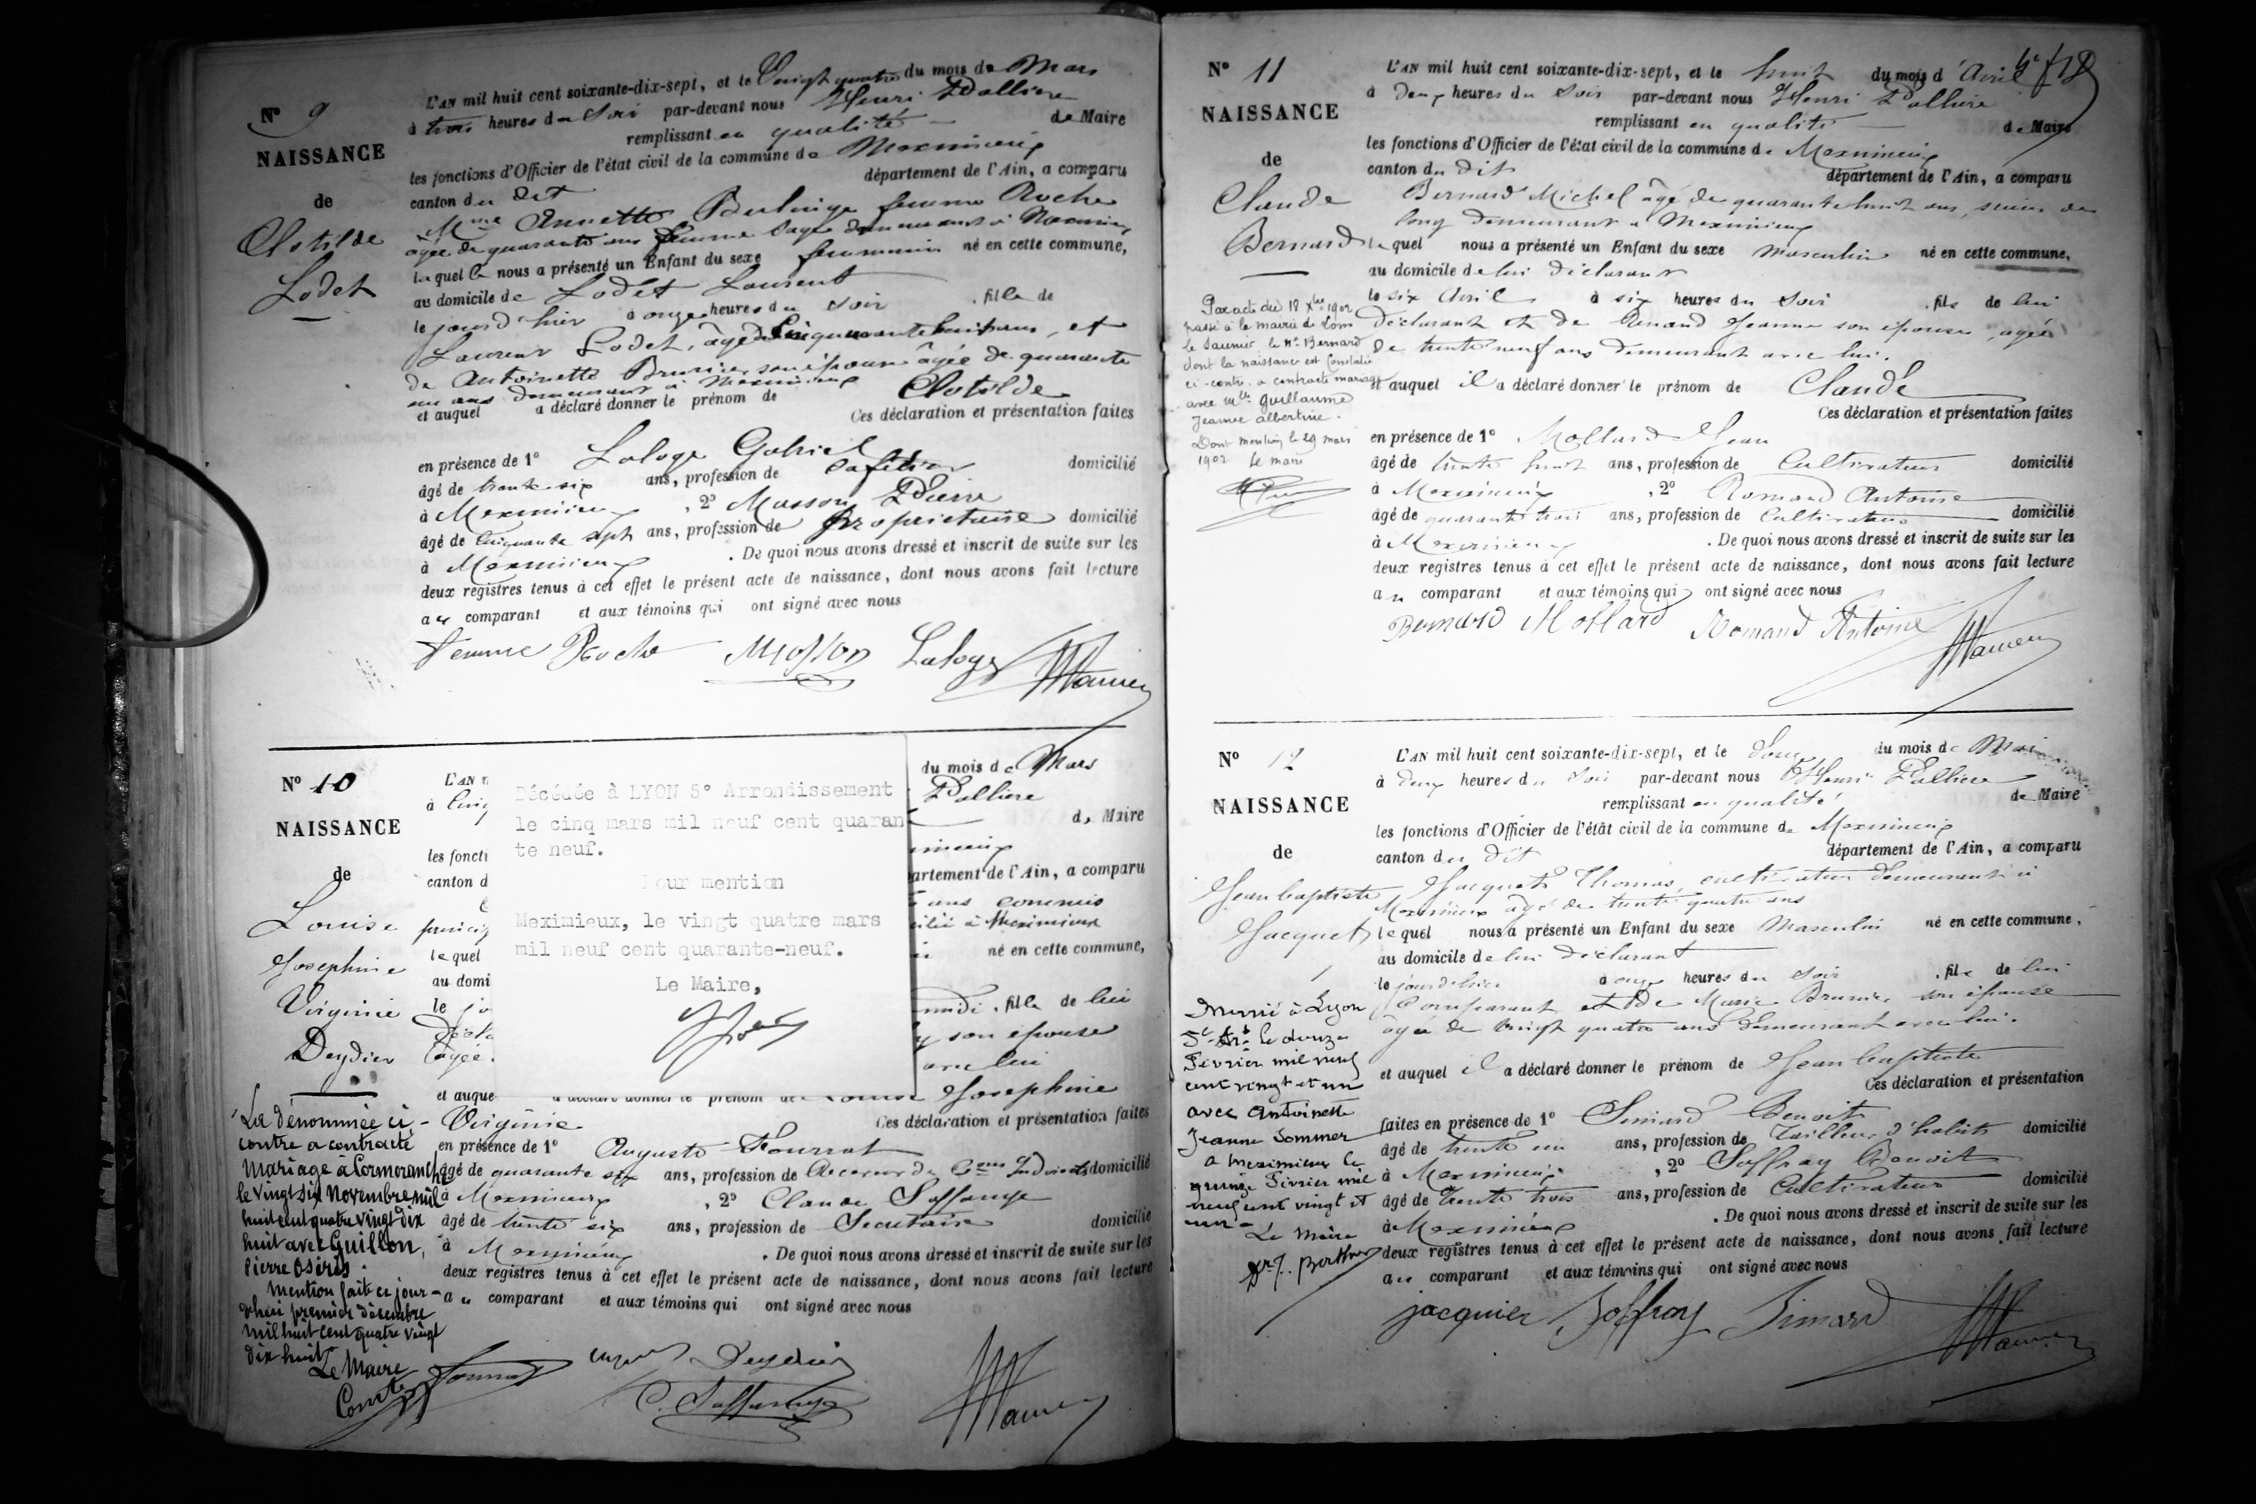 N° 9
NAISSANCE
de
Clotilde
Lodet
L'AN mil huit cent soixante-dix-sept, et le Vingt quatre du mois de Mars
à trois heures du Soir par-devant nous Henri Pallière
remplissant en qualité de Maire
les fonctions d'Officier de l'état civil de la commune de Meximieux
canton du dit département de l'Ain, a comparu
Mme Annette femme Roche
agée de quarante ans femme sage demeurant à Meximieux
laquelle nous a présenté un Enfant du sexe femminin né en cette commune,
au domicile de Lodet Laurent
le jour d'hier à onze heures du Soir . fille de
Laurent Lodet, âgé de Cinquante huit ans, et
de Antoinette Brunier son épouse âgée de quarante
un ans demeurant à Meximieux
et auquel a déclaré donner le prénom de Clotilde
Ces déclaration et présentation faites
en présence de 1° Laloge Gabriel
âgé de trente six ans, profession de domicilié
à Meximieux , 2° Masson Pierre
âgé de Cinquante sept ans, profession de propriétaire domicilié
à Meximieux . De quoi nous avons dressé et inscrit de suite sur les
deux registres tenus à cet effet le présent acte de naissance, dont nous avons fait lecture
au comparant et aux témoins qui ont signé avec nous
femme Roche Masson Laloge
N° 10
NAISSANCE
de
Louise
Josephine
Virginie
Deydier
L'AN
à
les foncti
canton d
lequel
au domi
le jo
agée
et auque
Décédée à LYON 5° Arrondissement
le cinq mars mil neuf cent quaran
te neuf.
Pour mention
Meximieux, le vingt quatre mars
mil neuf cent quarante-neuf.
Le Maire,
du mois de Mars
Pallière
de Maire
artement de l'Ain, a comparu
ans commis
à Meximieux
né en cette commune,
midi . fille de lui
son épouse
avec lui
a déclaré donner le prénom de Louise Josephine
Virginie Ces déclaration et présentation faites
en présence de 1° Auguste Fournat
âgé de quarante six ans, profession de domicilié
à Meximieux , 2° Claude Soffange
âgé de trente six ans, profession de Secrétaire domicilié
à Meximieux . De quoi nous avons dressé et inscrit de suite sur les
deux registres tenus à cet effet le présent acte de naissance, dont nous avons fait lecture
au comparant et aux témoins qui ont signé avec nous
Deydier
La dénommée ci-
contre a contracté
mariage à Cormoranche
le vingt six novembre mil
huit cent quatre vingt dix
huit avec Guillon,
Pierre Osiris.
Mention faite ce jour-
d'hui premier décembre
mil huit cent quatre vingt
dix huit
Le Maire
N° 11
NAISSANCE
de
Claude
Bernard
L'AN mil huit cent soixante-dix-sept, et le huit du mois d'Avril
à deux heures du Soir par-devant nous Henri Pallière
remplissant en qualité de Maire
les fonctions d'Officier de l'état civil de la commune de Meximieux
canton du dit département de l'Ain, a comparu
Bernard Michel âgé de quarante huit ans, scieur de
long demeurant à Meximieux
lequel nous a présenté un Enfant du sexe Masculin né en cette commune,
au domicile de lui déclarant
le six Avril à six heures du Soir . fils de lui
déclarant et de Jeanne son épouse, agée
de trente neuf ans demeurant avec lui.
et auquel il a déclaré donner le prénom de Claude
Ces déclaration et présentation faites
en présence de 1° Mollard Jean
âgé de trente huit ans, profession de Cultivateur domicilié
à Meximieux , 2° Romand Antoine
âgé de quarante trois ans, profession de Cultivateur domicilié
à Meximieux . De quoi nous avons dressé et inscrit de suite sur les
deux registres tenus à cet effet le présent acte de naissance, dont nous avons fait lecture
au comparant et aux témoins qui ont signé avec nous
Bernard Mollard Romand Antoine
Par acte du 18 Xbre 1902
passé à la mairie de Lons
le Saunier le Mr Bernard
dont la naissance est constatée
ci-contre a contracté mariage
avec Mlle Guillaume
Jeanne albertine.
Dont mention le 29 mars
1902 Le maire
N° 12
NAISSANCE
de
Jean baptiste
Jacquet
L'AN mil huit cent soixante-dix-sept, et le du mois de Mai
à deux heures du Soir par-devant nous Henri Pallière
remplissant en qualité de Maire
les fonctions d'Officier de l'état civil de la commune de Meximieux
canton du dit département de l'Ain, a comparu
Jacquet Thomas, cultivateur demeurant à
Meximieux âgé de trente quatre ans
lequel nous a présenté un Enfant du sexe Masculin né en cette commune,
au domicile de lui déclarant
le jour d'hier à onze heures du Soir . fils de lui
Comparant et de Marie Brunier son épouse
âgée de vingt quatre ans demeurant avec lui.
et auquel il a déclaré donner le prénom de Jean baptiste
Ces déclaration et présentation
faites en présence de 1° Simard Benoit
âgé de trente un ans, profession de Tailleur d'habits domicilié
à Meximieux , 2° Joffray Benoit
âgé de trente trois ans, profession de Cultivateur domicilié
à Meximieux . De quoi nous avons dressé et inscrit de suite sur les
deux registres tenus à cet effet le présent acte de naissance, dont nous avons fait lecture
au comparant et aux témoins qui ont signé avec nous
jacquier Joffray Simard
Marié à Lyon
5e Art le douze
Février mil neuf
cent vingt et un
avec Antoinette
Jeanne Sommer
a Meximieux le
quinze Février mil
neuf cent vingt et
un
Le Maire